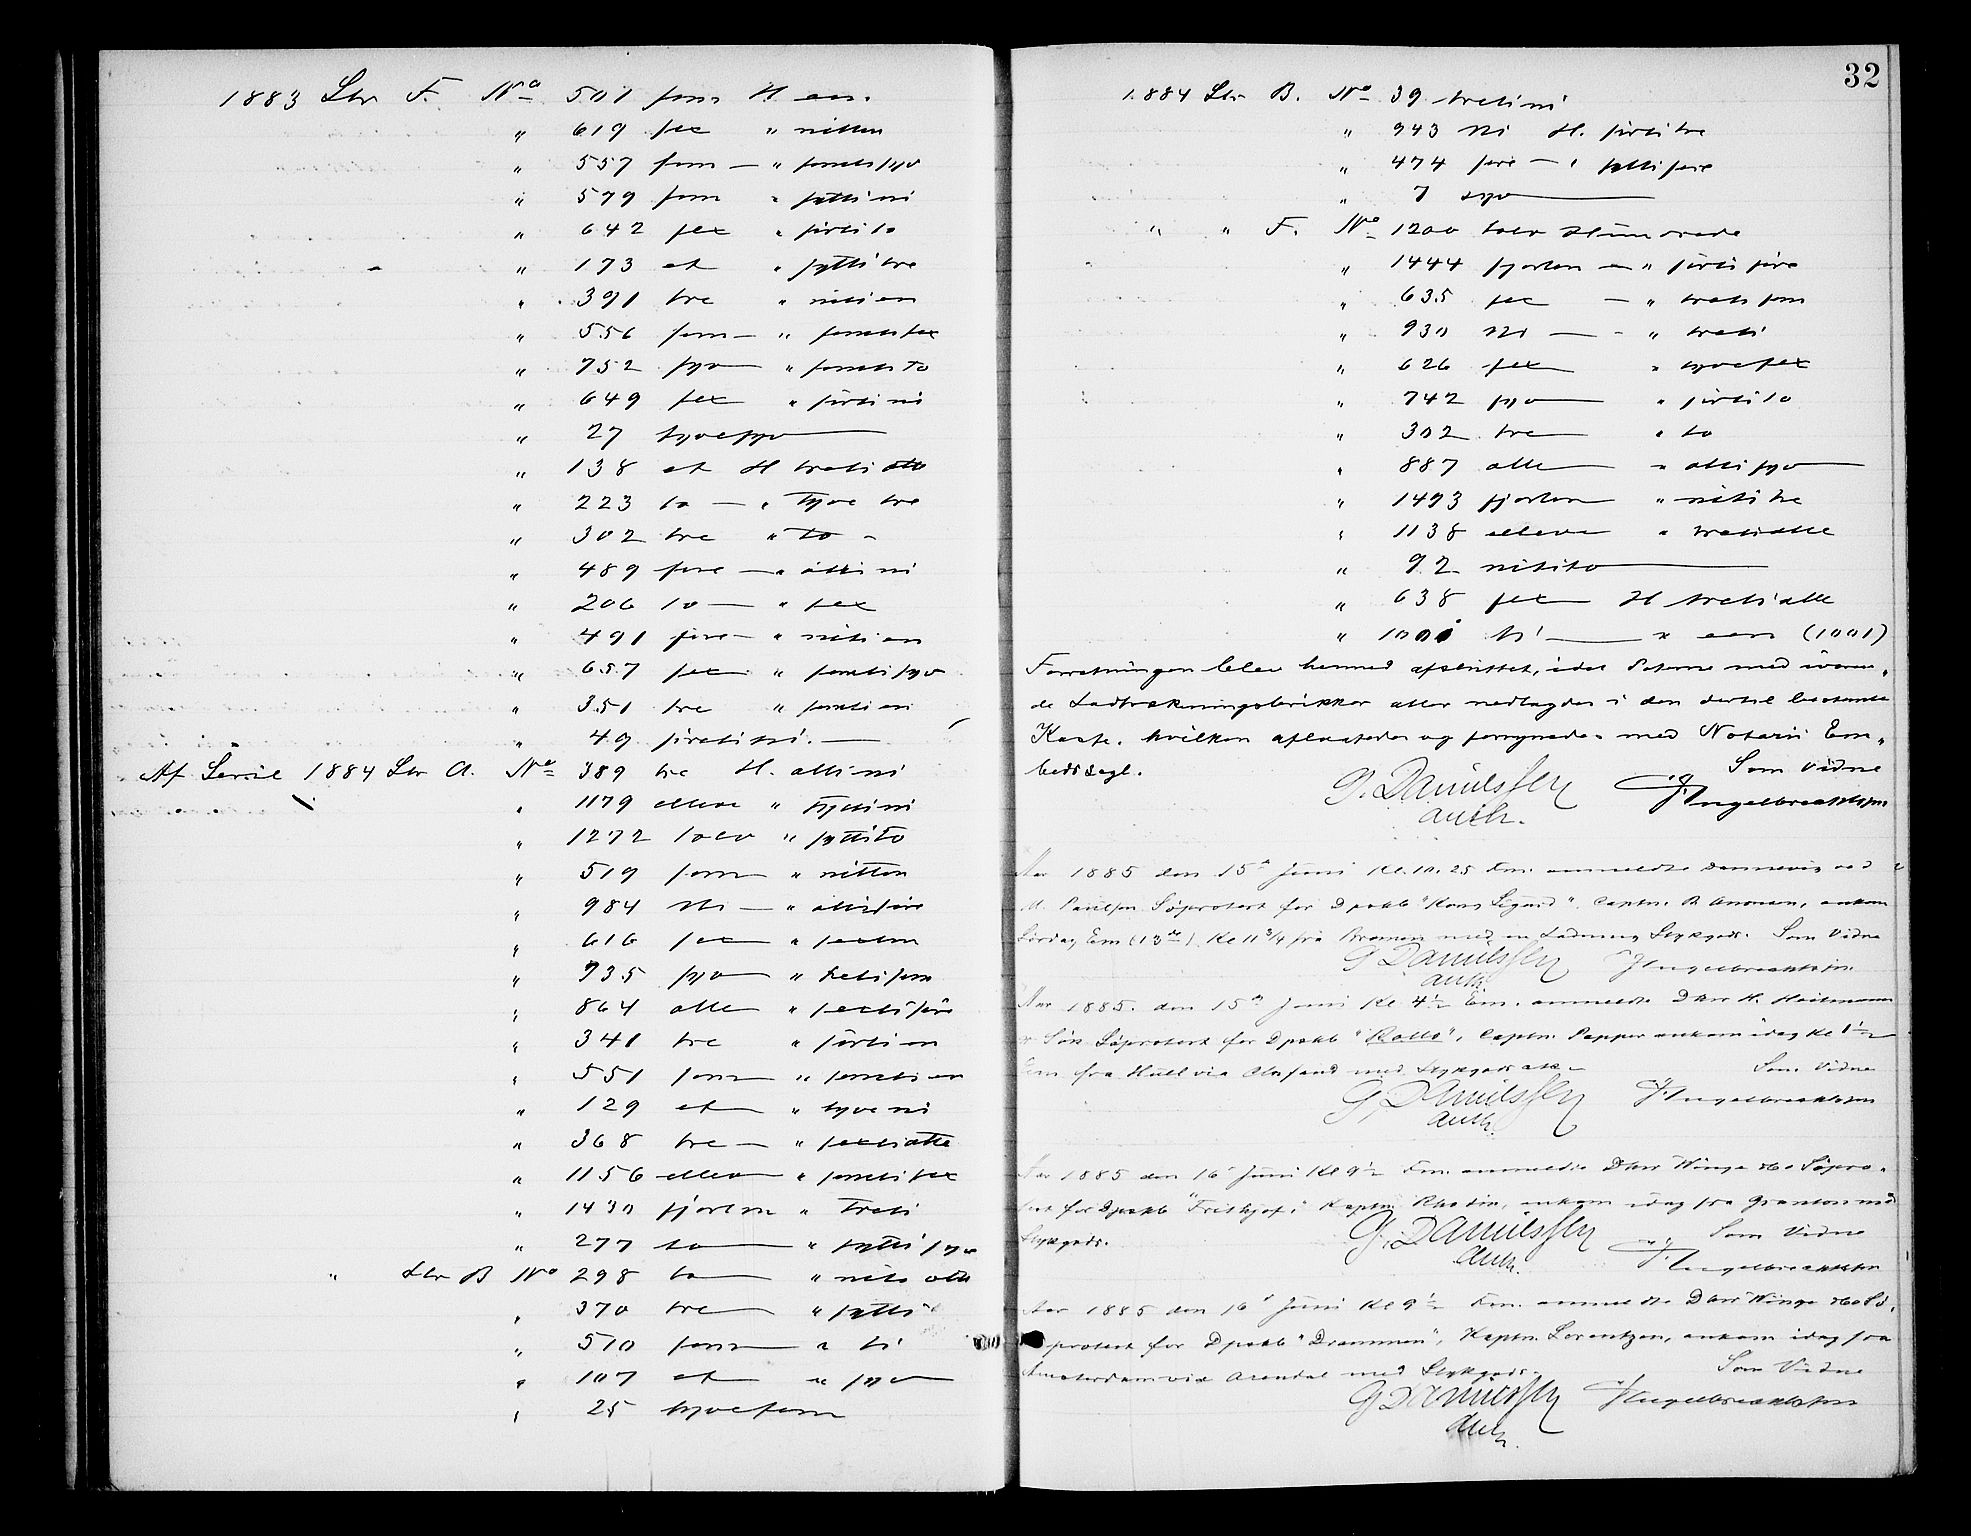 1883 Ltr F. No 501 fem H en.
" 619 sex " nitten
" 557 fem — " femtisyv
" 579 fem " sytti ni
" 642 sex " firti to
" 173 et " sytti tre
" 391 tre " niti en
" 556 fem — " femtisex
" 752 syv " femti to
" 649 sex " firti ni
" 27 tyvesyv
" 138 et H treti otte
" 223 to — " Tyve tre
" 302 tre " to –
" 489 fire — " otti ni
" 206 to — " sex
" 491 fire — " niti en
" 657 sex " femti syv
" 351 tre " femti en
" 49 firetini. —
Af Serie 1884 Ltr A. No 389 tre H. otti ni
" 1179 elleve " sytti ni
" 1272 tolv " sytti to
" 519 fem " nitten
" 984 ni — " otti fire
" 616 sex " sexten
" 735 syv " treti fem
" 864 otte " sexti fire
" 341 tre " firti en
" 551 fem " femti en
" 129 et " tyve ni
" 368 tre — " sexti otte
" 1156 elleve " femti sex
" 1430 fjorten " treti
" 277 to " sytti syv
" Ltr B No 298 to " niti otte
" 370 tre " sytti
" 510 fem " ti
" 107 et " syv
" 25 tyvefem
32
1884 Ltr B. No 39 tretini
" 943 Ni H. firti tre
" 474 fire — " sytti fire
" 7 syv
" " F. No 1200 tolv Hundrede
" 1444 fjorten — " firti fire
" 635 sex — " treti fem
" 930 Ni — " treti
" 626 sex " tyvesex
" 742 syv " firti to
" 302 tre " to
" 887 otte " otti syv
" 1493 fjorten " niti tre
" 1138 elleve " tretiotte
" 92 nitito
" 638 sex H treti otte
" 1001 ti — " een (1001)
Forretningen blev hermed afsluttet, idet med iværen„
de Udtrækningsbrikker atter nedlagdes i den dertil bestemte
Kasse, hvilken aflaasedes og forsynedes med Notarii Em„
bedssegl. Som Vidne
G. Danielssen J. Ingebrechtsen
auth.
Aar 1885 den 15de Juni Kl. 10.25 Fm. anmeldte Dannevig ved
M. Paulsen Söprotest for Dpskb "Kong Sigurd", Captn. ankom
Lördag Em (13de) Kl 11 3/4 fra Bremen med en Ladning Stykgods. Som Vidne
G Danielssen J Ingebrechtsen
auth.
Aar 1885. den 15de Juni Kl. 4 1/2 Em. anmeldte Dhrr H. Heitmann
& Sön Söprotest for Dpskb "Rollo", Captn. Pepper ankom idag Kl 1 1/2
Em fra Hull via Chrsand med Stykgods – Som Vidne
G. Danielssen J. Ingebrechtsen
auth.
Aar 1885 den 16 Juni Kl 9 1/2 Fm. anmeldte Dhrr Winge & Co Söpro„
test for Dpskb "Frithjof" Kaptn. Rhodin, ankom idag fra Granton med
Stykgods. G. Danielssen Som Vidne
auth. J Ingebrechtsen
Aar 1885 den 16 Juni Kl 9 1/2 Fm. anmeldte Dhrr Winge & Co Sö„
protest for Dpskb "Drammen", Kaptn. Lorentzen, ankom idag fra
Amsterdam via Arendal med Stykgods. Som Vidne
G Danielssen J Ingebrechtsen
auth.